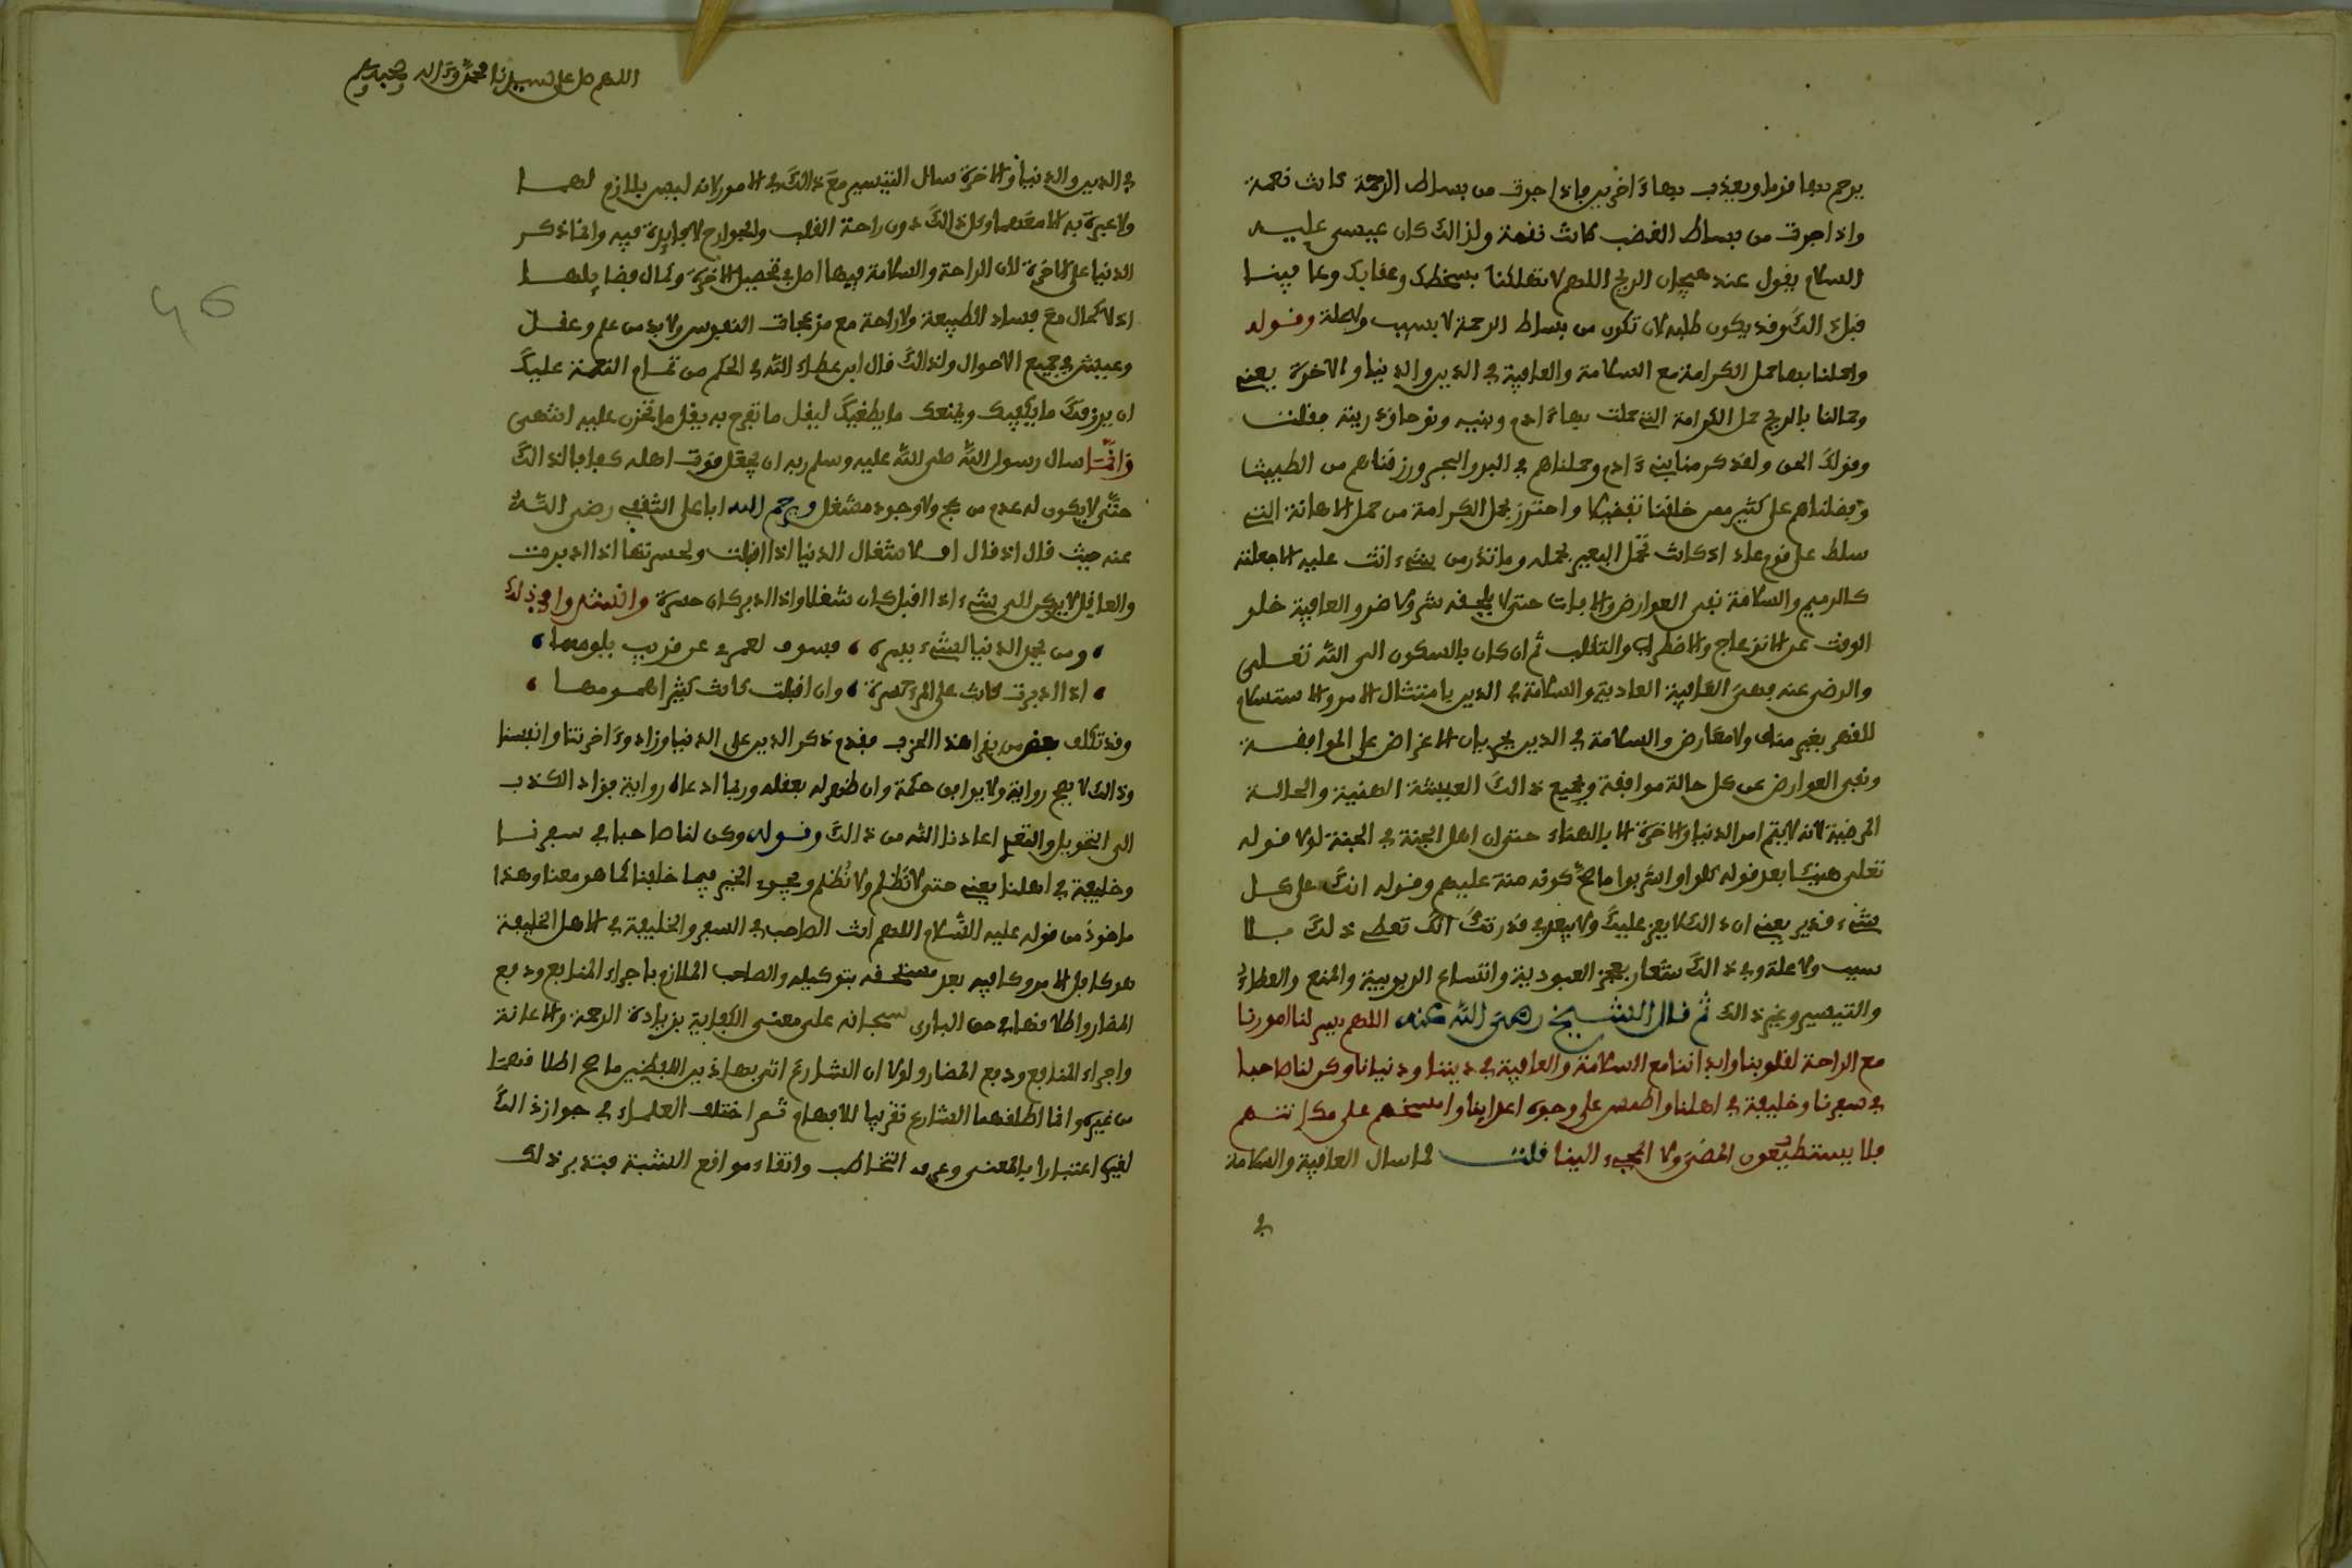 يرحم بها قوما ويعذب بها ءاخرين فإذا جرت من بساط الرحمة كانت نعمة
واذا جرت من بساط الغضب كانت نقمة ولذالك كان عيسى عليه
السلام يقول عند هيجان الريح اللهم لا تهلكنا بسخطك وعقابك وعافينا
قبل ذالك وقد يكون طلبه لان تكون من بساط الرحمة لا بسبب ولا علة وقوله
واحملنا بها حمل الكرامة مع السلامة والعافية في الدين والدنيا والآخرة يعني
وحمالنا بالريح حمل الكرامة التي حملت بها ءادم وبنيه ونوحا وذريته فقلت
وقولك الحق ولقد كرمنا بني ءادم وحملناهم في البر والبحر ورزقناهم من الطيبات
وفضلناهم على كثير ممن خلقنا تفضيلا واحترز بحمل الكرامة من حمل الاهانة التي
سلط على قوم عاد اذ كانت تحمل البعير بحمله وما تذر من شيء اتت عليه الا جعلته
كالرميم والسلامة نفي العوارض والافات حتى لا يلحقه شر ولا ضرر والعافية خلو
الوقت عن الانزعاج والاضطراب والتقلب ثم ان كان بالسكون الى الله تعلى
والرضى عنه فهي العافية العادية والسلامة في الدين بامتثال الامر والاستسلام
للقهر بغير مناف ولا معارض والسلامة في الدين بجريان الاغراض على الموافقة
ونفي العوارض عن كل حالة موافقة وجميع ذالك العيشة الهنية والحالة
المرضية لانه لا يتم امر الدنيا والاخرة الا بالهناء حتى ان اهل الجنة في الجنة لولا قوله
تعلى هنيئا بعد قوله كلوا واشربوا ما صح كونه منة عليهم وقوله انك على كل
شيء قدير يعني ان ذالك لا يعز عليك ولا يبعد في قدرتك انك تعطي ذلك بلا
سبب ولا علة وفي ذالك شعار بعجز العبودية واتساع الربوبية والمنع والعطاء
والتيسير وغير ذالك ثم قال الشيخ رضي الله عنه اللهم يسر لنا امورنا
مع الراحة لقلوبنا وابداننا مع السلامة والعافية في ديننا ودنيانا وكن لنا صاحبا
في سفرنا وخليفة في اهلنا واطمس على وجوه اعداينا وامسخهم على مكانتهم
فلا يستطيعون المضي ولا المجيء الينا قلت لما سال العافية والسلامة
في
اللهم صل على سيدنا محمد وءاله وصحبه وسلم
46
في الدين والدنيا والاخرة سال التيسير مع ذالك في الامور لانه ليس بلازم لهما
ولا عبرة به الا معهما وكل ذالك دون راحة القلب والجوارح لا فايدة فيه وانما ذكر
الدنيا على الاخرة لان الراحة والسلامة فيها اصل في تحصيل الاخرة وكمال فضايلها
اذ لا كمال مع فساد الطبيعة ولا راحة مع مزعجات النفوس ولا بد من علم وعقل
وعيش في جميع الاحوال ولذالك قال ابن عطاء الله في الحكم من تمام النعمة عليك
ان يرزقك ما يكفيك ويمنعك ما يطغيك ليقل ما تفرح به يقل ما تحزن عليه انتهى
وانما سال رسول الله صلى الله عليه وسلم ربه ان يجعل قوت اهله كفافا لذالك
حتى لا يكون له عدم من عج ولا وجود مشغل ويرحم الله ابا على الثقفي رضي الله
عنه حيث قال اذ قال اف لاشغال الدنيا اذا اقبلت ولحسرتها اذا ادبرت
والعاقل لا يركن الى شيء اذا اقبل كان شغلا واذا ادبر كان حسرة وانشدوا في ذلك
ومن يحمد الدنيا لشيء يسره فسوف لعمري عن قريب يلومها
اذا ادبرت كانت على المرء حسرة وان اقبلت كانت كثيرا همومها
وقد تكلف بعض من يقرا هذا الحزب فقدم ذكر الدين على الدنيا وزاد وءاخرتنا وانفسنا
وذالك لا يصح رواية ولا يوافق حكمة وان ظهر له بعقله وربما ادعاه رواية فزاد الكذب
الى التحويل والتغيير اعاذنا الله من ذالك وقوله وكن لنا صاحبا في سفرنا
وخليفة في اهلنا يعني حتى لا نظلم ولا نُظلم ويجيء الخير فيما خلفنا كما هو معنا وهذا
ماخوذ من قوله عليه السلام اللهم انت الصاحب في السفر والخليفة في الاهل الخليفة
هو كافل الامر وكافيه بعد مستحقه بتوكيله والصاحب الملازم باجراء المنافع ودفع
المضار واطلاقهما في حق الباري سبحانه على معنى الكفاية بزيادة الرحمة والاعانة
واجراء المنافع ودفع المضار ولولا ان الشارع اتى بهاذين اللفظين ما صح اطلاقهما
من غيره وانما اطلقهما الشارع تقريبا للافهام ثم اختلف العلماء في جواز ذالك
لغيره اعتبارا بالمعنى وعرف التخاطب واتقاء مواقع الشبه فتدبر ذلك